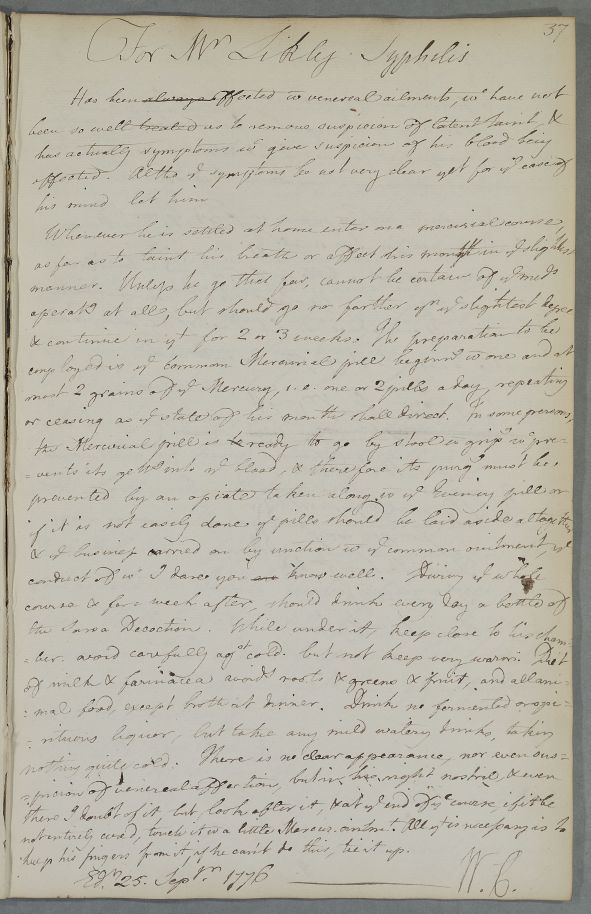 37
For Mr Likly. Syphilis
Has been always affected wt venereal ailments, wc have not
been so well treated as to remove suspicion of latent taint, &
has actually symptoms wc give suspicion of his blood being
affected. Altho' ye symptoms be not very clear yet for ye ease of
his mind let him
Whenever he is settled at home enter on a mercurial course,
as far as to taint his breath or affect his mouth in ye slightest
manner. Unless he go that far, cannot be certain of ye meds
operatg at all, but should go no farther yn ye slightest degree
& continue in yt for 2 or 3 weeks. The preparation to be
employed is ye common Mercurial pill beginng wt one and at
most 2 grains of ye Mercury, i.e. one or 2 pills a day, repeating
or ceasing as ye state of his mouth shall direct. In some persons,
the Mercurial pill is ready to go by stool wt gripg wc pre=
=vents its gettg into ye blood, & therefore its purgg must be
prevented by an opiate taken along wt ye Evening pill or
if it is not easily done ye pills should be laid aside altogether
& ye business carried on by unction wt ye common ointment, ye
conduct of wc I dare you know well. During ye whole
course & for a week after, should drink every day a bottle of
the Sarsa Decoction. While under it, keep close to his cham=
=ber. avoid carefully agst cold. but not keep very warm. Diet
of milk & farinacea avoidg roots & greens & fruit, and all ani=
=mal food, except broth at dinner. Drink no fermented or spi=
=rituous liquor, but take any mild watery drinks, taking
nothing quite cold. There is no clear appearance, nor even sus=
=picion of venereal affection, but in his right nostril & even
there I doubt of it, but, look after it, & at ye end of ye course, if it be
not entirely cured, touch it wt a little Mercur. ointmt. All yt is necessary is to
keep his fingers from it, if he can't do this, tie it up.
Edr. 25. Septr. 1776
W. C.